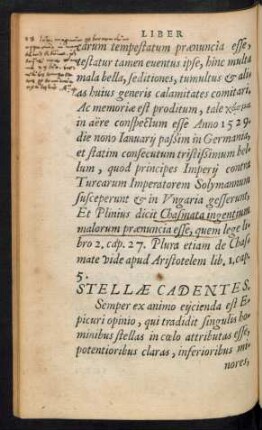 LIBER
earum tempestatum prænuncia esse,
testatur tamen euentus ipse, hinc multa
mala bella, seditiones, tumultus & alias
huius generis calamitates comitari.
Ac memoriæ est proditum, tale
in aëre conspectum esse Anno 1529.
die nono Ianuarij passim in Germania,
et statim consecutum tristissimum bel
lum, quod principes Imperij contra
Turcarum Imperatorem Solymannum
susceperunt & in Vngaria gesserunt.
Et Plinius dicit Chasmata ingentium
malorum prænuncia esse, quem lege li
bro 2. cap. 27. Plura etiam de Chas
mate vide apud Aristotelem lib. 1. cap.
5.
STELLÆ CADENTES.
Semper ex animo eijcienda est E
picuri opinio, qui tradidit singulis ho
minibus stellas in cœlo attributas esse,
potentioribus claras, inferioribus mi
nores,